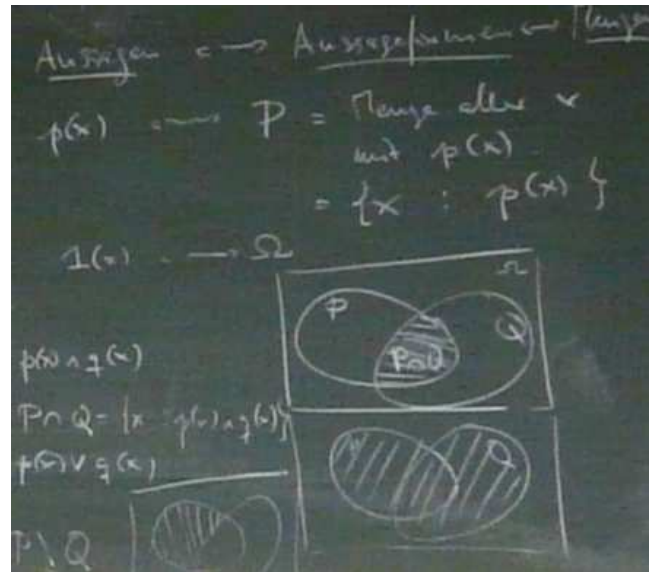 Aussagen ⟷ Aussageformen ⟷ Mengen
p(x) ⟶ P = Menge aller x
mit p(x)
= {x : p(x)}
1(x) ⟶ Ω
Ω
P Q
P∩Q
p(x) ∧ q(x)
P∩Q = {x : p(x) ∧ q(x)}
p(x) ∨ q(x)
P Q
P \ Q